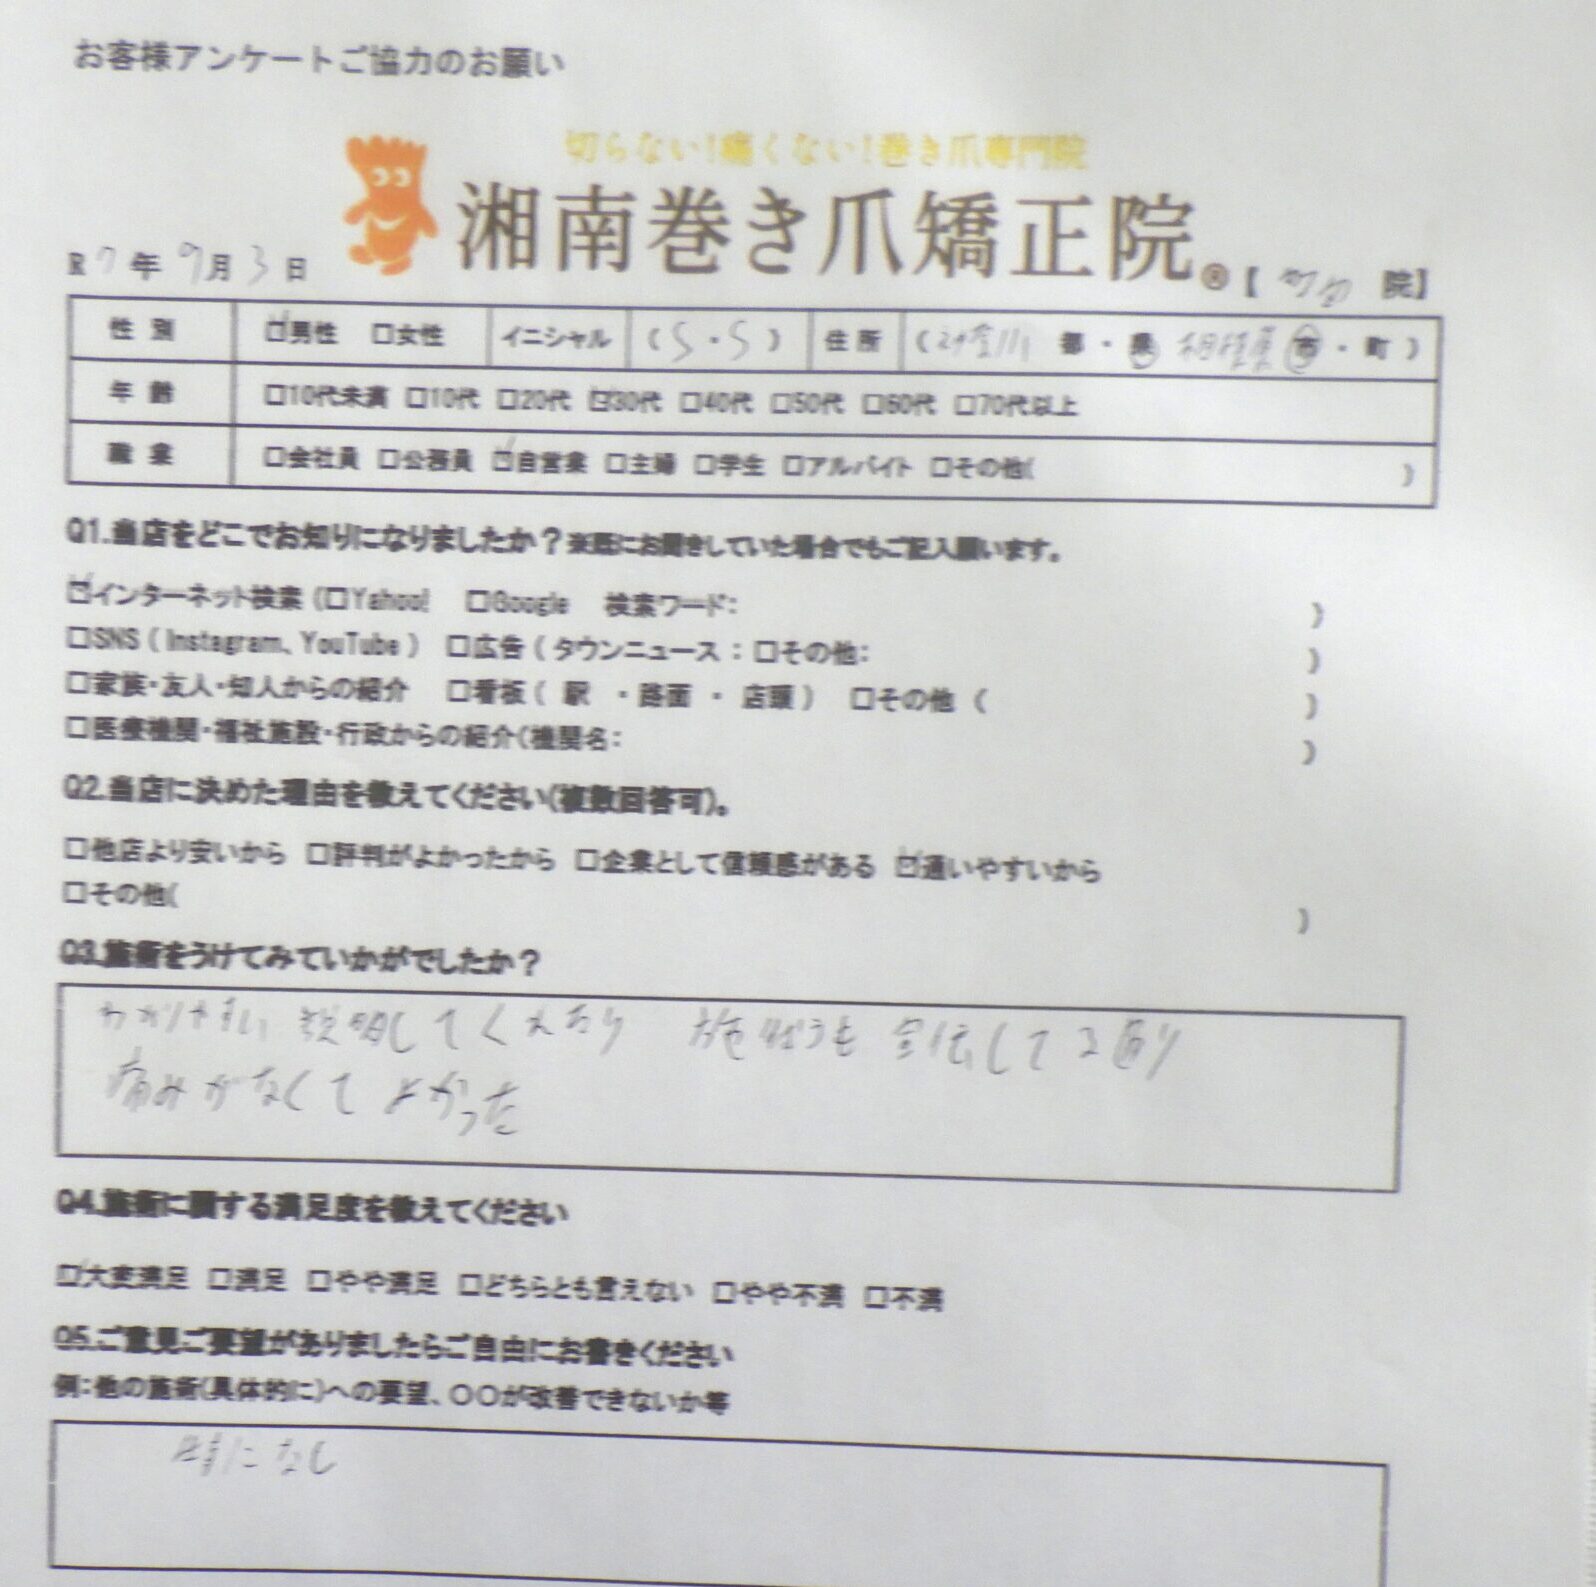 お客様アンケートご協力のお願い
切らない!痛くない!巻き爪専門院
湘南巻き爪矯正院®【町田 院】
R7年9月3日
性別 ☑男性 □女性 イニシャル (S・S) 住所 (神奈川 都・県 相模原 市・町)
年齢 □10代未満 □10代 □20代 ☑30代 □40代 □50代 □60代 □70代以上
職業 □会社員 □公務員 ☑自営業 □主婦 □学生 □アルバイト □その他( )
Q1.当店をどこでお知りになりましたか?※既にお聞きしていた場合でもご記入願います。
☑インターネット検索 (□Yahoo! □Google 検索ワード: )
□SNS ( Instagram、YouTube ) □広告 ( タウンニュース : □その他: )
□家族・友人・知人からの紹介 □看板 ( 駅 ・路面 ・ 店頭 ) □その他 ( )
□医療機関・福祉施設・行政からの紹介(機関名: )
Q2.当店に決めた理由を教えてください(複数回答可)。
□他店より安いから □評判がよかったから □企業として信頼感がある ☑通いやすいから
□その他( )
Q3.施術をうけてみていかがでしたか?
わかりやすい 説明してくれおり 施 宣伝してる通り
痛みがなくて よかった
Q4.施術に関する満足度を教えてください
☑大変満足 □満足 □やや満足 □どちらとも言えない □やや不満 □不満
Q5.ご意見ご要望がありましたらご自由にお書きください
例:他の施術(具体的に)への要望、〇〇が改善できないか等
特になし